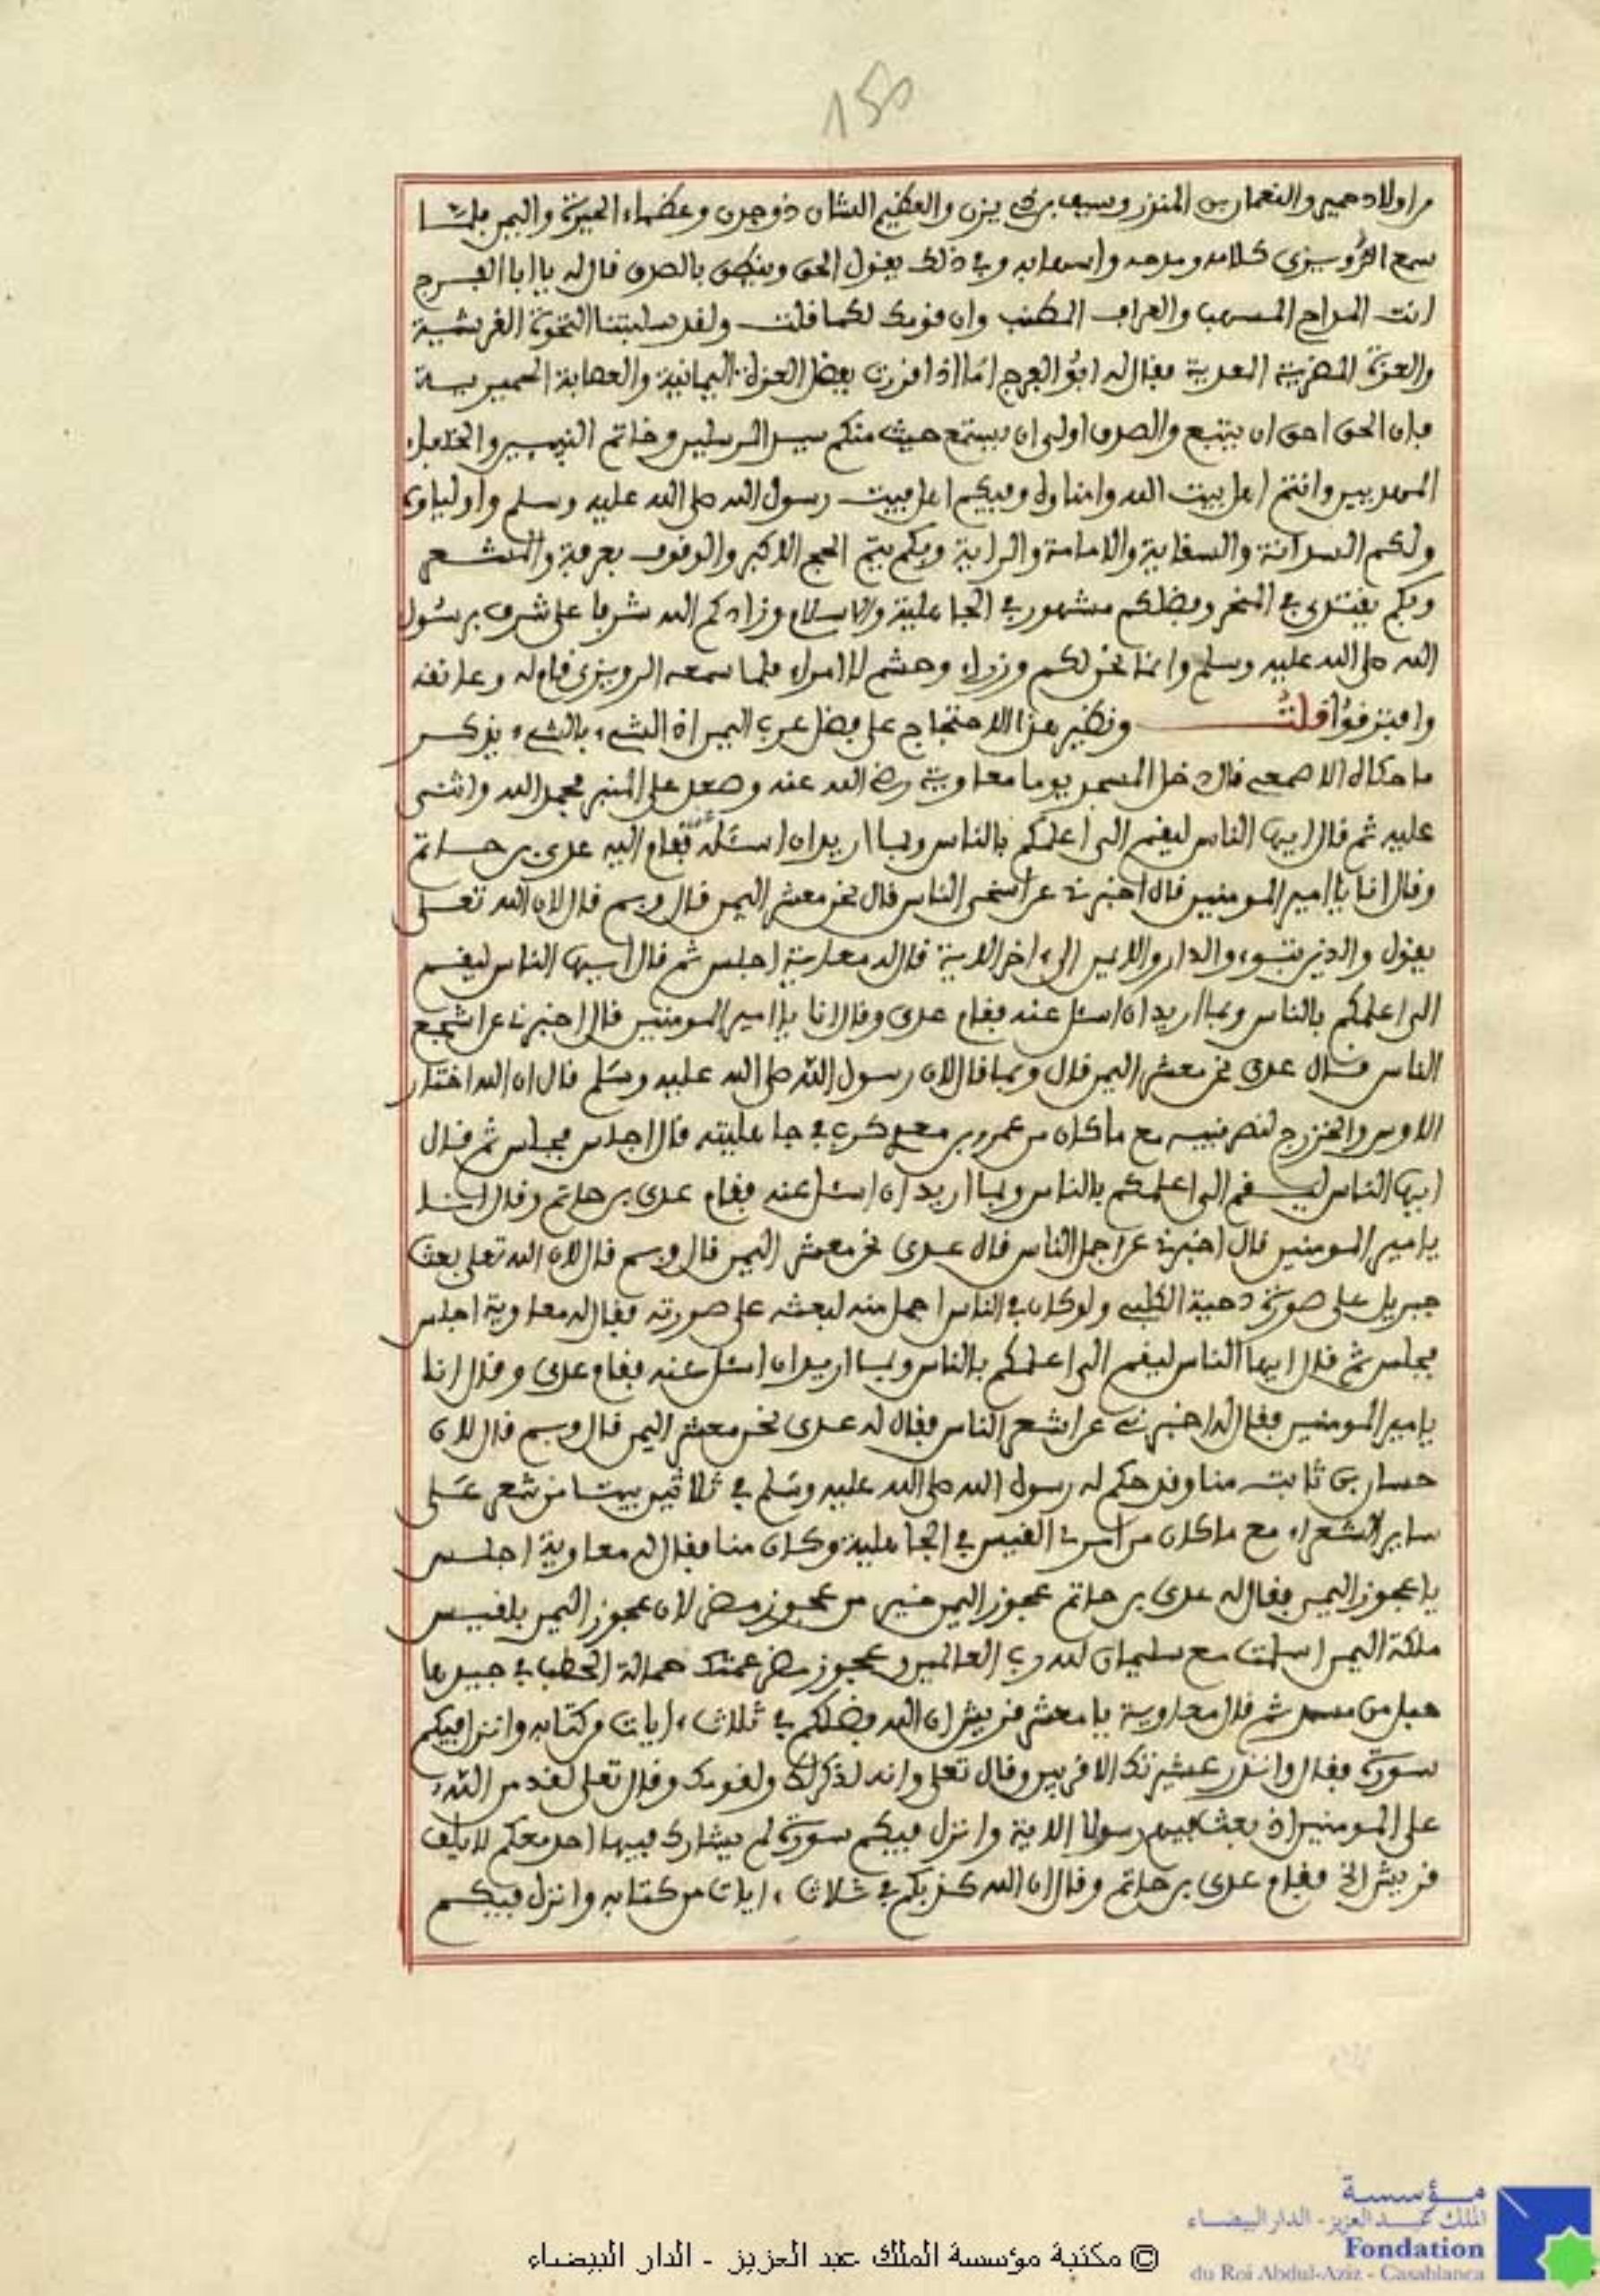 150
من اولاد حمير والنعمان بن المنذر وسيف بن ذي يزن والعظيم الشان ذو جدن وعظماء الحيرة واليمن فلما
سمع كلامه ومدحه واسهابه وفي ذلك يقول الحق وينطق بالصدق قال له يا ابا الفرج
انت المداح المسهب والعراف المطنب وان قومك لكما قلت ولقد سلبتنا النخوة القرشية
والعزة المضرية العدية فقال له ابو الفرج اما اذا اقررت بفضل العزلة اليمانية والعصابة الحميرية
فان الحق احق ان يتبع والصدق اولى ان يستمع حيث منكم سيد المرسلين وخاتم النبيين والخلفاء
المهديين وانتم اهل بيت الله وامناوه وفيكم اهل بيت رسول الله صلى الله عليه وسلم واولياوه
ولكم السدانة والسقاية والامامة والراية وبكم يتم الحج الاكبر والوقوف بعرفة والمشعر
وبكم يقتدى في المنحر وفضلكم مشهور في الجاهلية والاسلام وزادكم الله شرفا على شرف برسول
الله صلى الله عليه وسلم وانما نحن لكم وزراء وحشم لا امراء فلما سمعه قام له وعانقه
وافترقوا قلت ونظير هذا الاحتجاج على فضل عرب اليمن اذ الشيء بالشيء يذكر
ما حكاه الاصمعي قال دخل المسجد يوما معاوية رضي الله عنه وصعد على المنبر فحمد الله واثنى
عليه ثم قال ايها الناس ليقم الي اعلمكم بالناس وبما اريد ان اسئله عنه فقام اليه عدي بن حاتم
وقال انا يا امير المومنين قال اخبرني عن اسخى الناس قال نحن معشر اليمن قال وبم قال لان الله تعلى
يقول والذين تبوءو الدار والايمن الى ءاخر الاية قال له معاوية اجلس ثم قال ايها الناس ليقم
الي اعلمكم بالناس وبما اريد ان اسئل عنه فقام عدي وقال انا يا امير المومنين قال اخبرني عن اشجع
الناس قال عدي نحن معشر اليمن قال وبما قال لان رسول الله صلى الله عليه وسلم قال ان الله اختار
الاوس والخزرج لنصر نبيه مع ما كان من عمرو بن معدي كرب في جاهليته قال اجلس فجلس ثم قال
ايها الناس ليقم الي اعلمكم بالناس وبما اريد ان اسئل عنه فقام عدي بن حاتم وقال انا
يامير المومنين قال اخبرني عن اجمل الناس قال عدي نحن معشر اليمن قال وبم قال لان الله تعلى بعث
جبريل على صورة دحية الكلبي ولو كان في الناس اجمل منه لبعثه على صورته فقال له معاوية اجلس
فجلس ثم قال ايها الناس ليقم الي اعلمكم بالناس وبما اريد ان اسئل عنه فقام عدي وقال انا
يامير المومنين فقال له اخبرني عن اشعر الناس فقال له عدي نحن معشر اليمن قال وبم قال لان
حسان بن ثابت منا وقد حكم له رسول الله صلى الله عليه وسلم في ثلاثين بيتا من شعر على
ساير الشعراء مع ما كان من امرئ القيس في الجاهلية وكان منا فقال له معاوية اجلس
يا عجوز اليمن فقال له عدي بن حاتم عجوز اليمن خير من عجوز مضر لان عجوز اليمن بلقيس
ملكة اليمن اسلمت مع سليمان لله رب العالمين وعجوز مضر عمتك حمالة الحطب في جيدها
حبل من مسد ثم قال معاوية يا معشر قريش ان الله فضلكم في ثلاث ءايات من كتابه وانزل فيكم
سورة فقال وانذر عشيرتك الاقربين وقال تعلى وانه لذكر لك ولقومك وقال تعلى لقد من الله
على المومنين اذ بعث فيهم رسولا الاية وانزل فيكم سورة لم يشارك فيها احد معكم لايلف
قريش الخ فقام عدي بن حاتم وقال ان الله كذبكم في ثلاث ءايات من كتابه وانزل فيكم
مؤسسة
الملك عبد العزيز - الدار البيضاء
Fondation
du Roi Abdul-Aziz - Casablanca
© مكتبة مؤسسة الملك عبد العزيز - الدار البيضاء